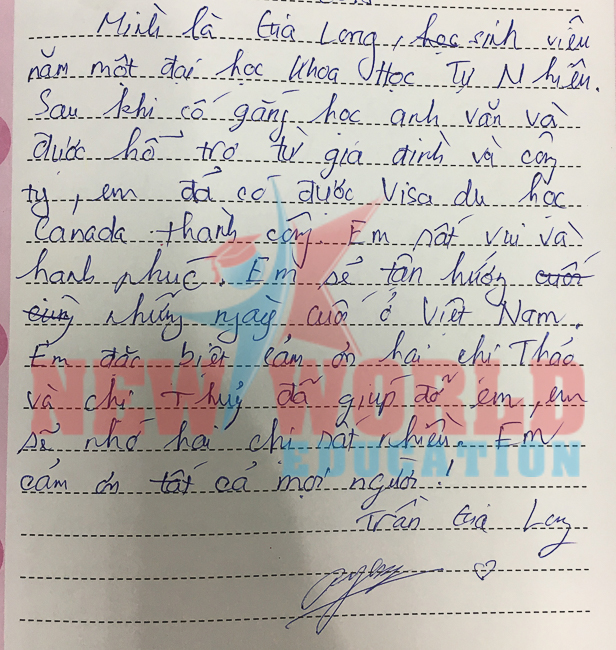 Mình là Gia Long, học sinh viên
năm một đại học Khoa Học Tự Nhiên.
Sau khi cố gắng học anh văn và
được hỗ trợ từ gia đình và công
ty, em đã có được Visa du học
Canada thành công. Em rất vui và
hạnh phúc. Em sẽ tận hưởng cuối
cùng những ngày cuối ở Việt Nam.
Em đặc biệt cảm ơn hai chị Thảo
và chị Thủy đã giúp đỡ em, em
sẽ nhớ hai chị rất nhiều. Em
cảm ơn tất cả mọi người!
Trần Gia Long
NEW WORLD
EDUCATION